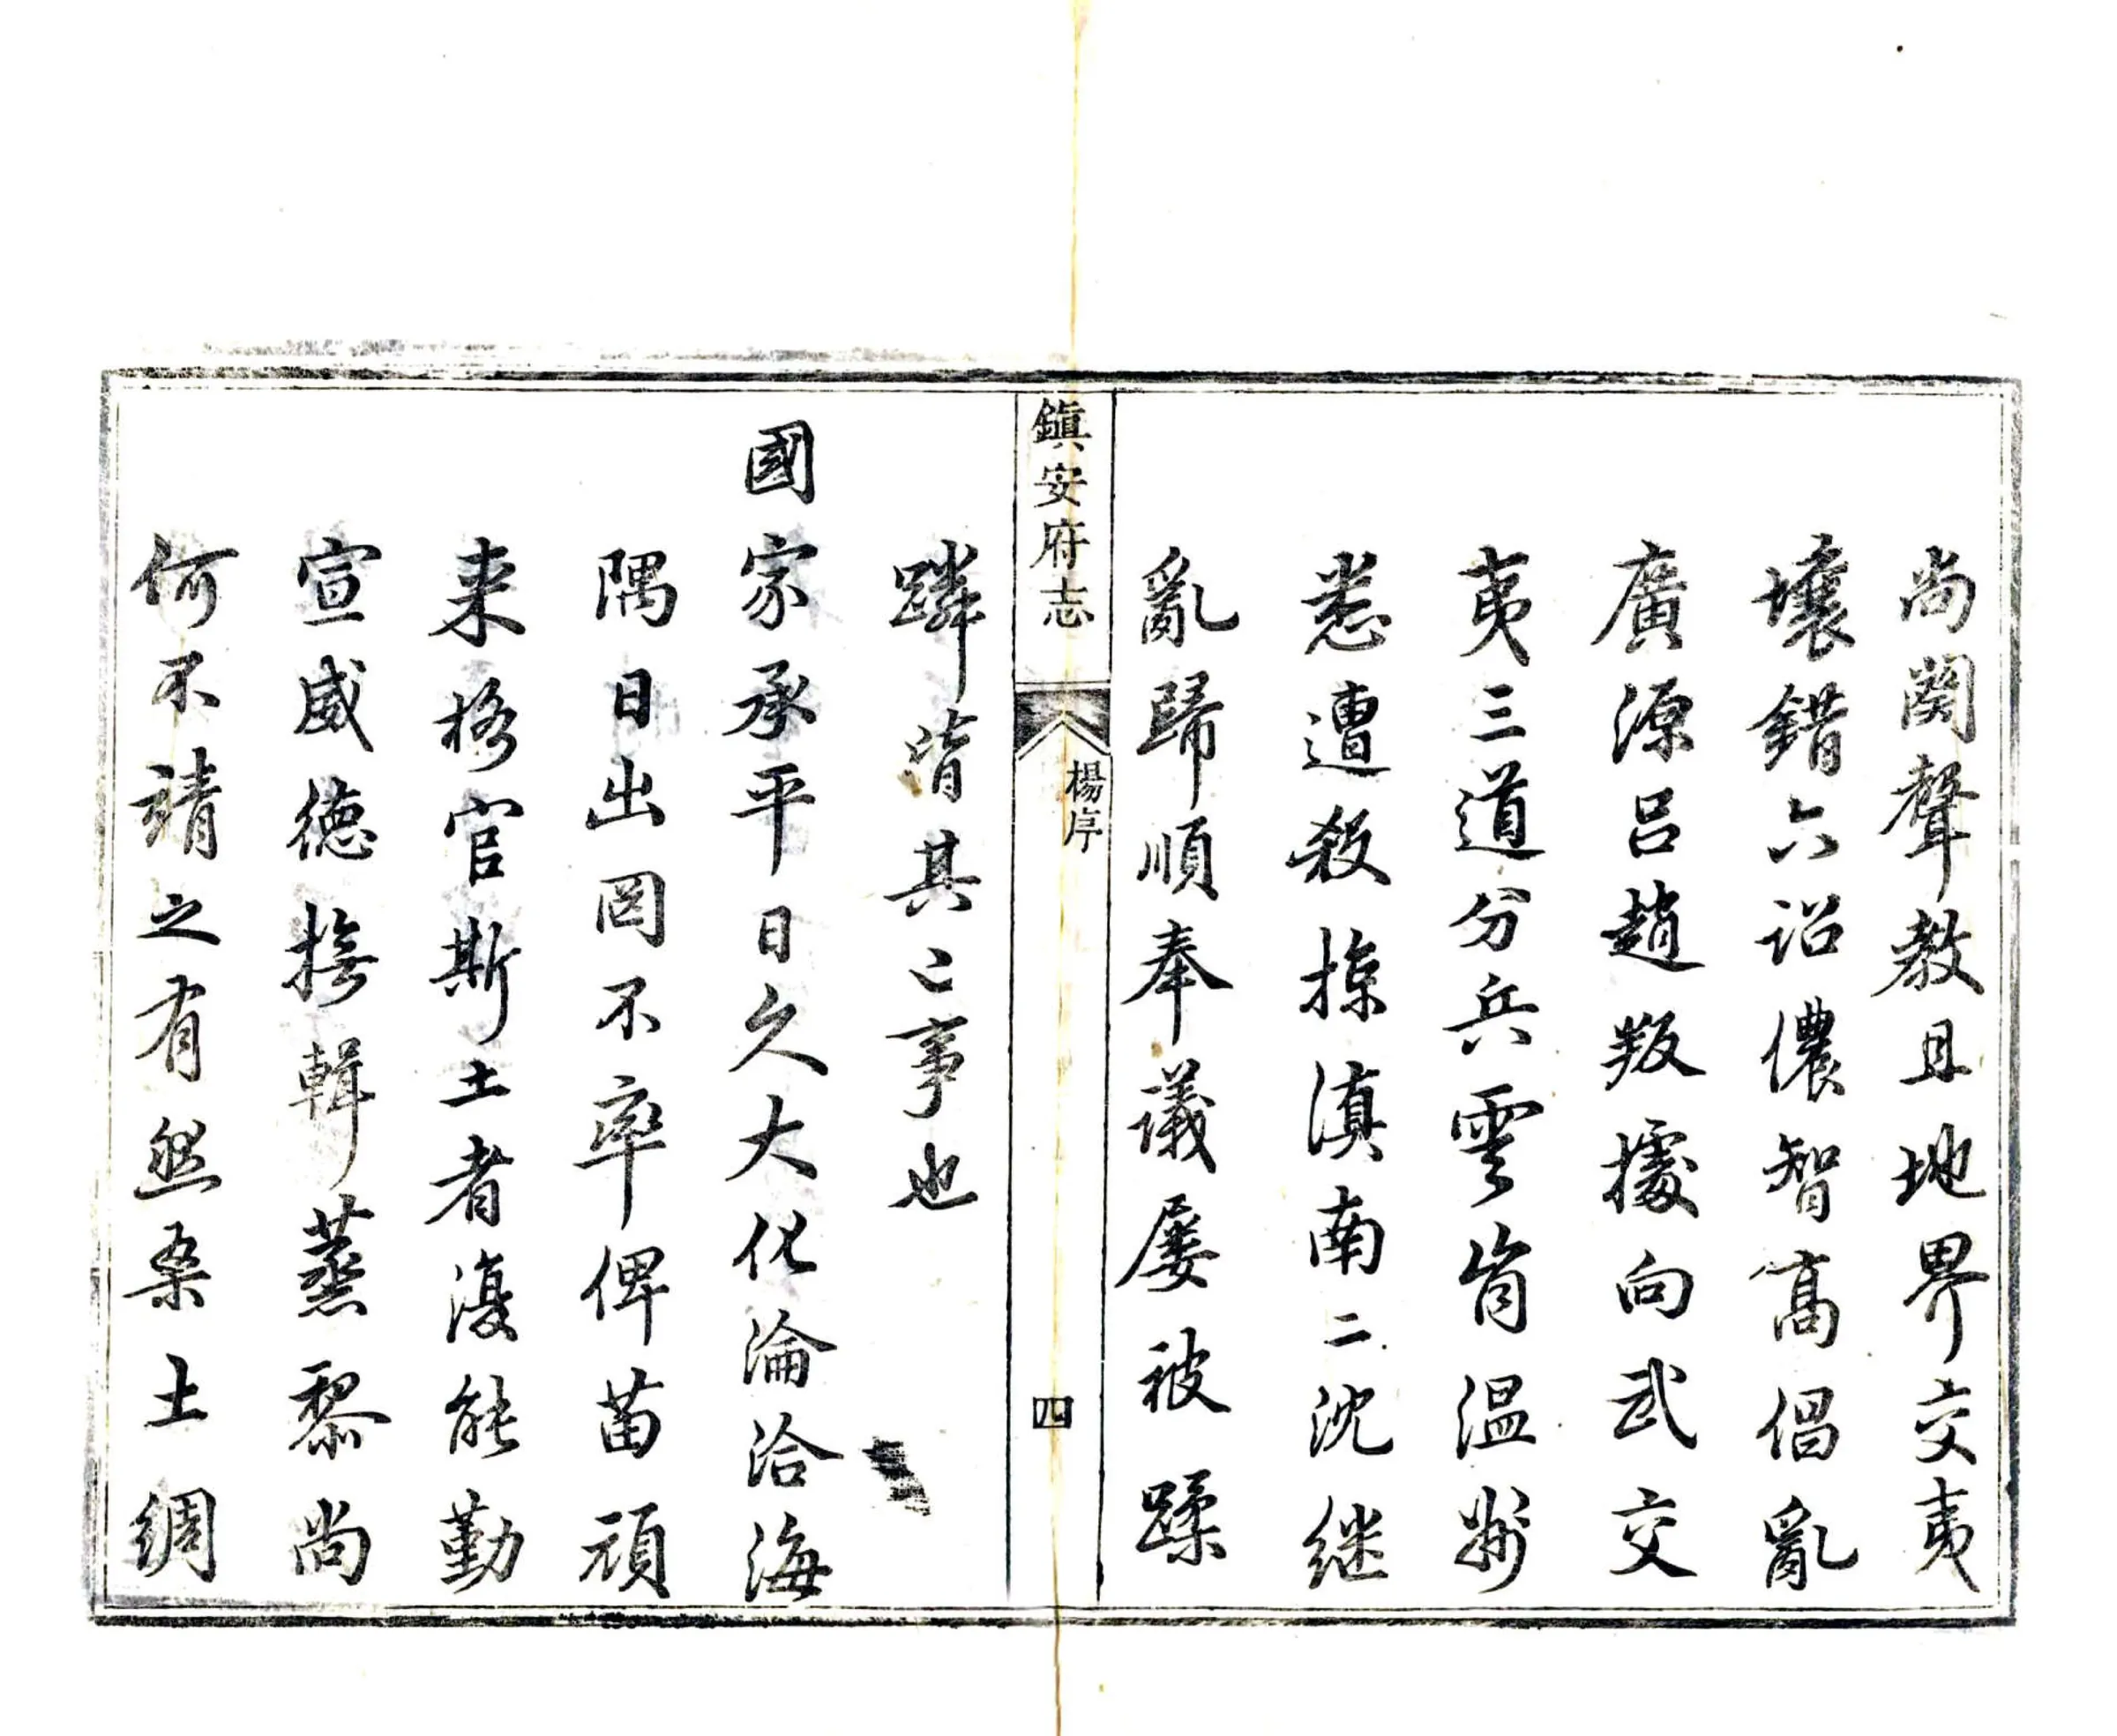 尚闕聲教且地界交夷
壤錯六詔儂智高倡亂
廣源呂趙叛據向武交
夷三道分兵雲貴溫州
悉遭殺掠滇南二沈繼
亂歸順奉議屢被蹂
鎮安府志
楊序
四
躪皆其已事也
國家承平日久大化淪洽海
隅日出罔不率俾苗頑
来格官斯土者漫能勤
宣威德撫輯蒸黎尚
何不靖之有然桑土綢